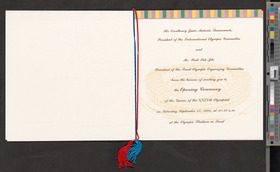 His Excellency Juan Antonio Samaranch,
President of the International Olympic Committee
and
Mr. Park Seh-Jik
President of the Seoul Olympic Organizing Committee
have the honour of inviting you to
the Opening Ceremony
of the Games of the XXIVth Olympiad
on Saturday, September 17, 1988, at 10:30 a.m.
at the Olympic Stadium in Seoul